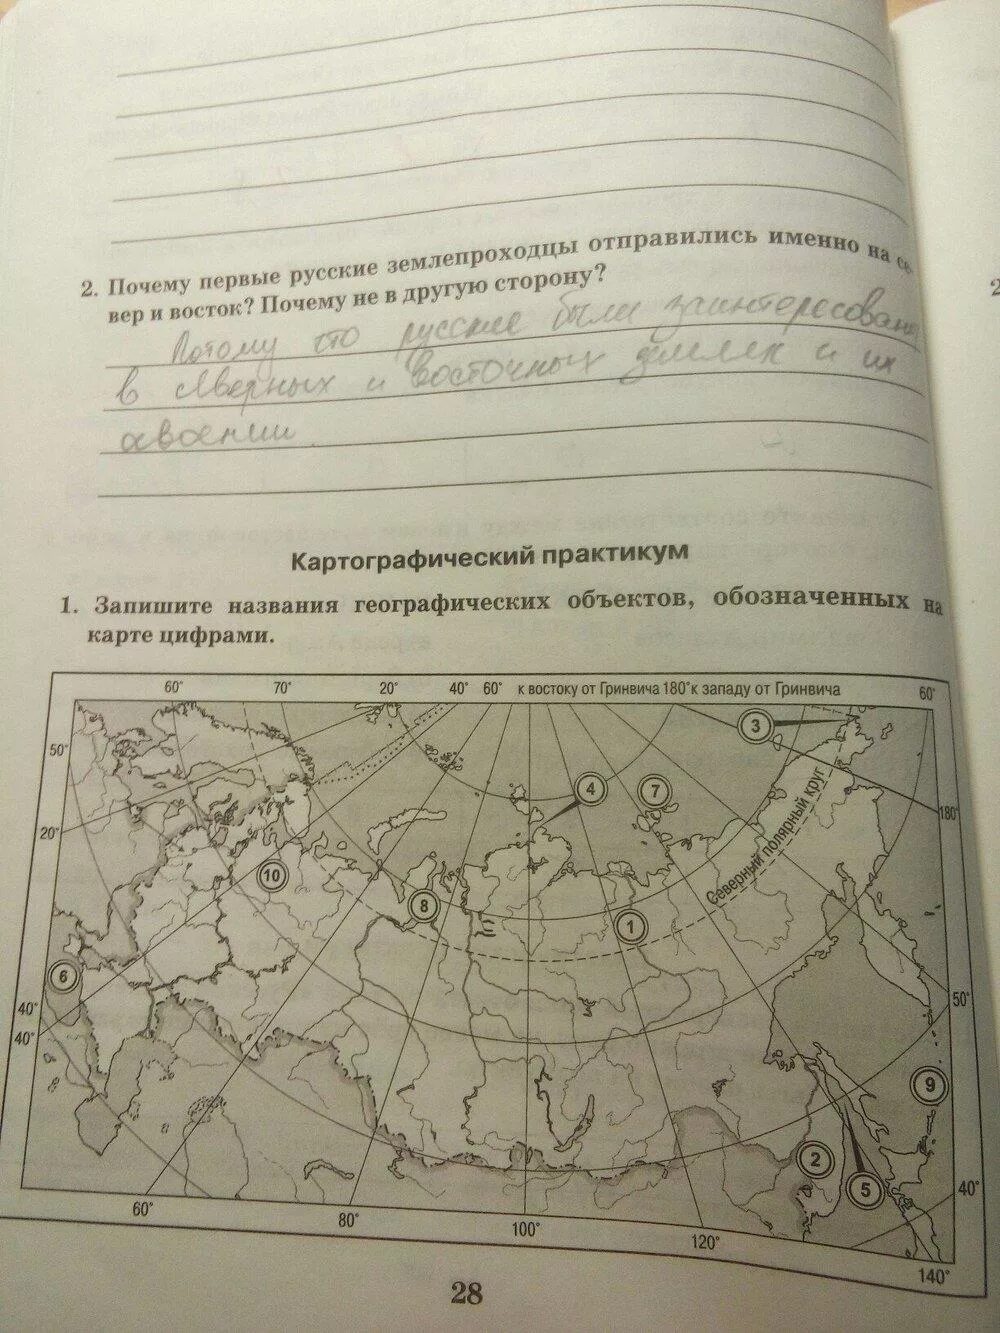 2. Почему первые русские землепроходцы отправились именно на се-
вер и восток? Почему не в другую сторону?
Потому что русские были заинтересованы
в северных и восточных землях и их
освоении
Картографический практикум
1. Запишите названия географических объектов, обозначенных на
карте цифрами.
60° 70° 20° 40° 60° к востоку от Гринвича 180° к западу от Гринвича 60°
50°
3
4
7
180°
20°
Северный полярный круг
10
8
1
6
40°
50°
40°
9
2
5
40°
60°
80°
100°
120°
140°
28
2